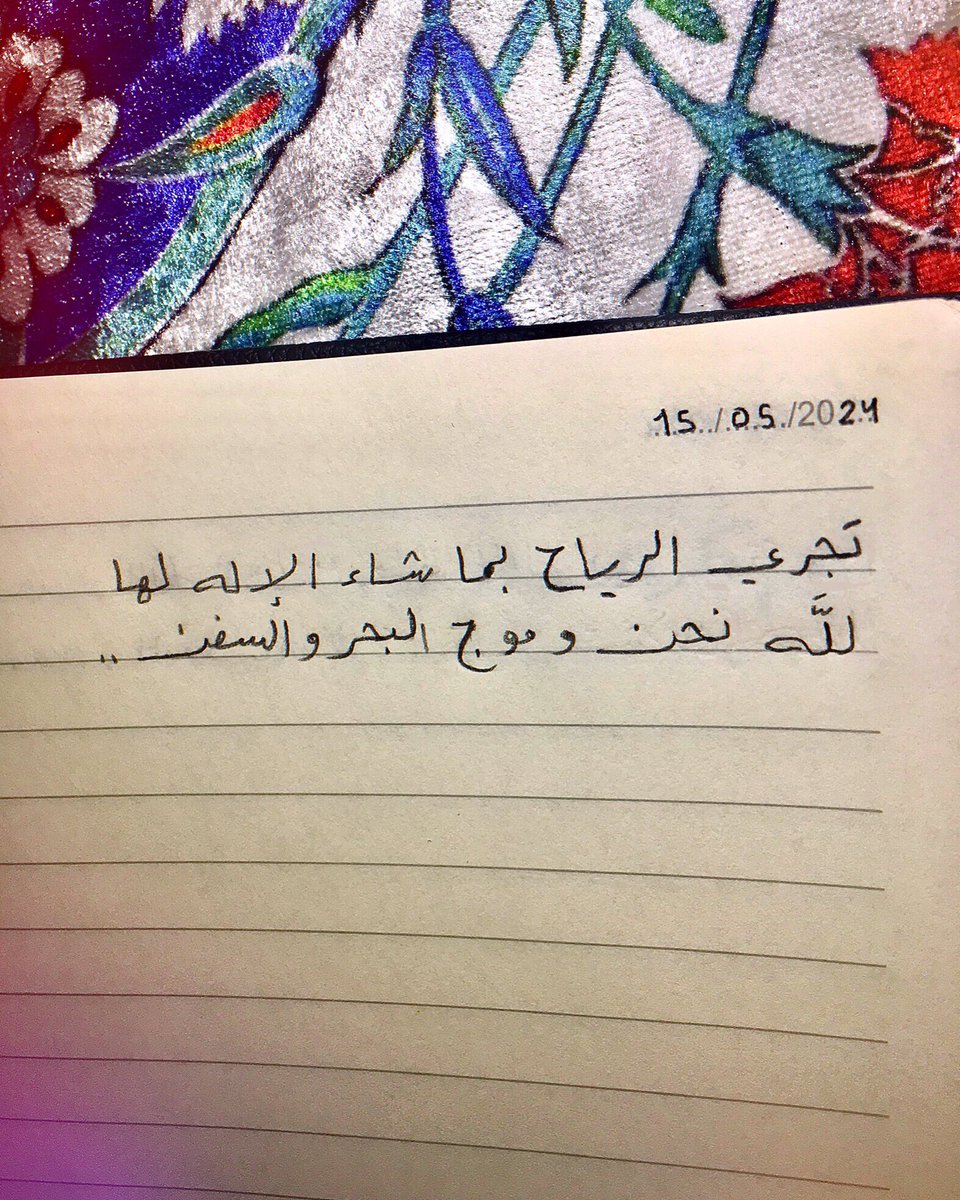 15../.05./2024
تجري الرياح بما شاء الإله لها
للَّه نحن وموج البحر والسفن ..